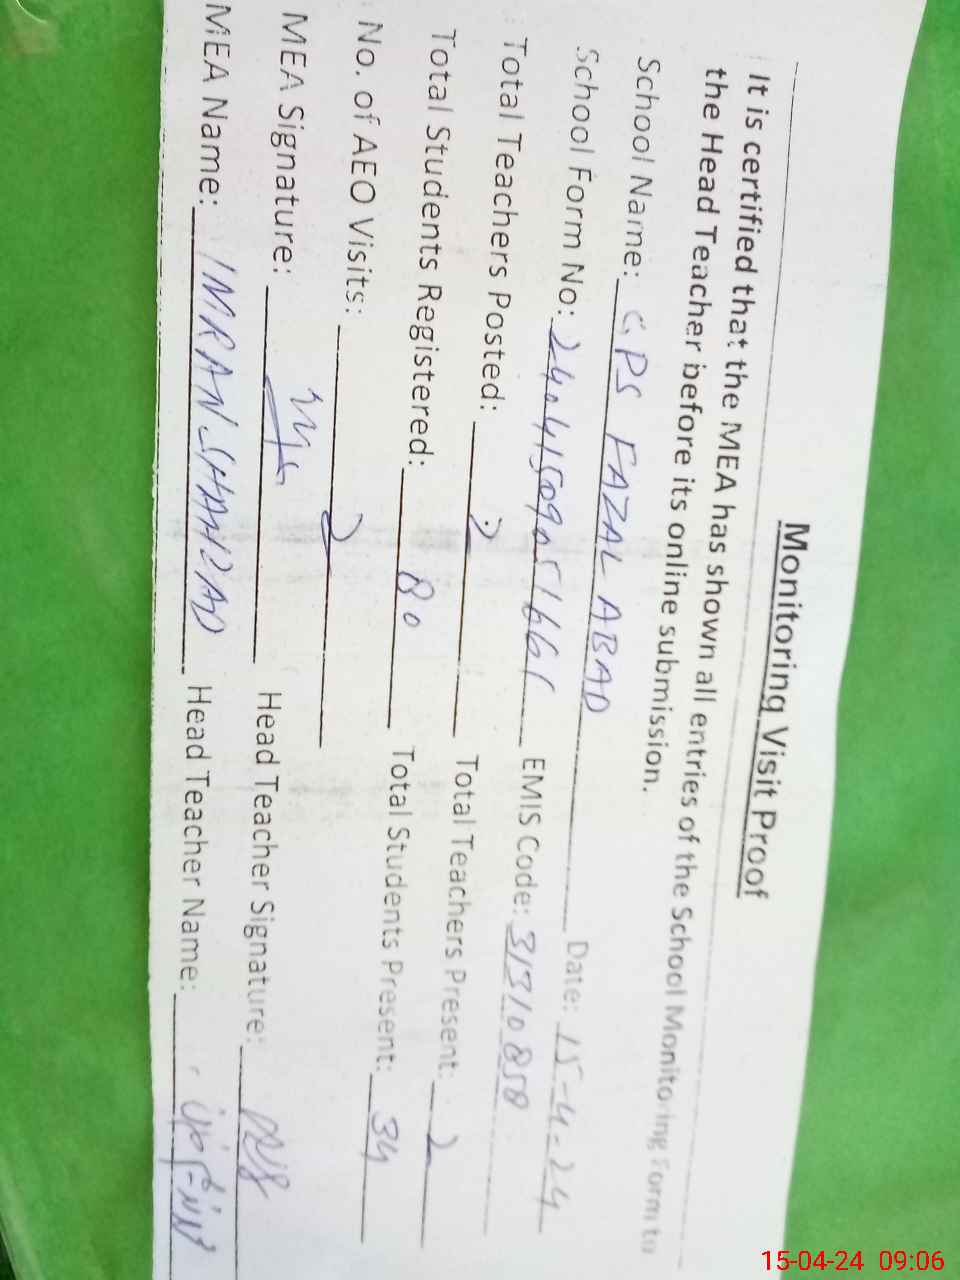 Monitoring Visit Proof
It is certified that the MEA has shown all entries of the School Monitoring Form to
the Head Teacher before its online submission.
School Name: GPS FAZAL ABAD Date: 15-4-24
School Form No: EMIS Code: 31310858
Total Teachers Posted: 2 Total Teachers Present: 2
Total Students Registered: 80 Total Students Present: 34
No. of AEO Visits: 2
MEA Signature: Head Teacher Signature:
MEA Name: IMRAN SHAHZAD Head Teacher Name:
15-04-24 09:06